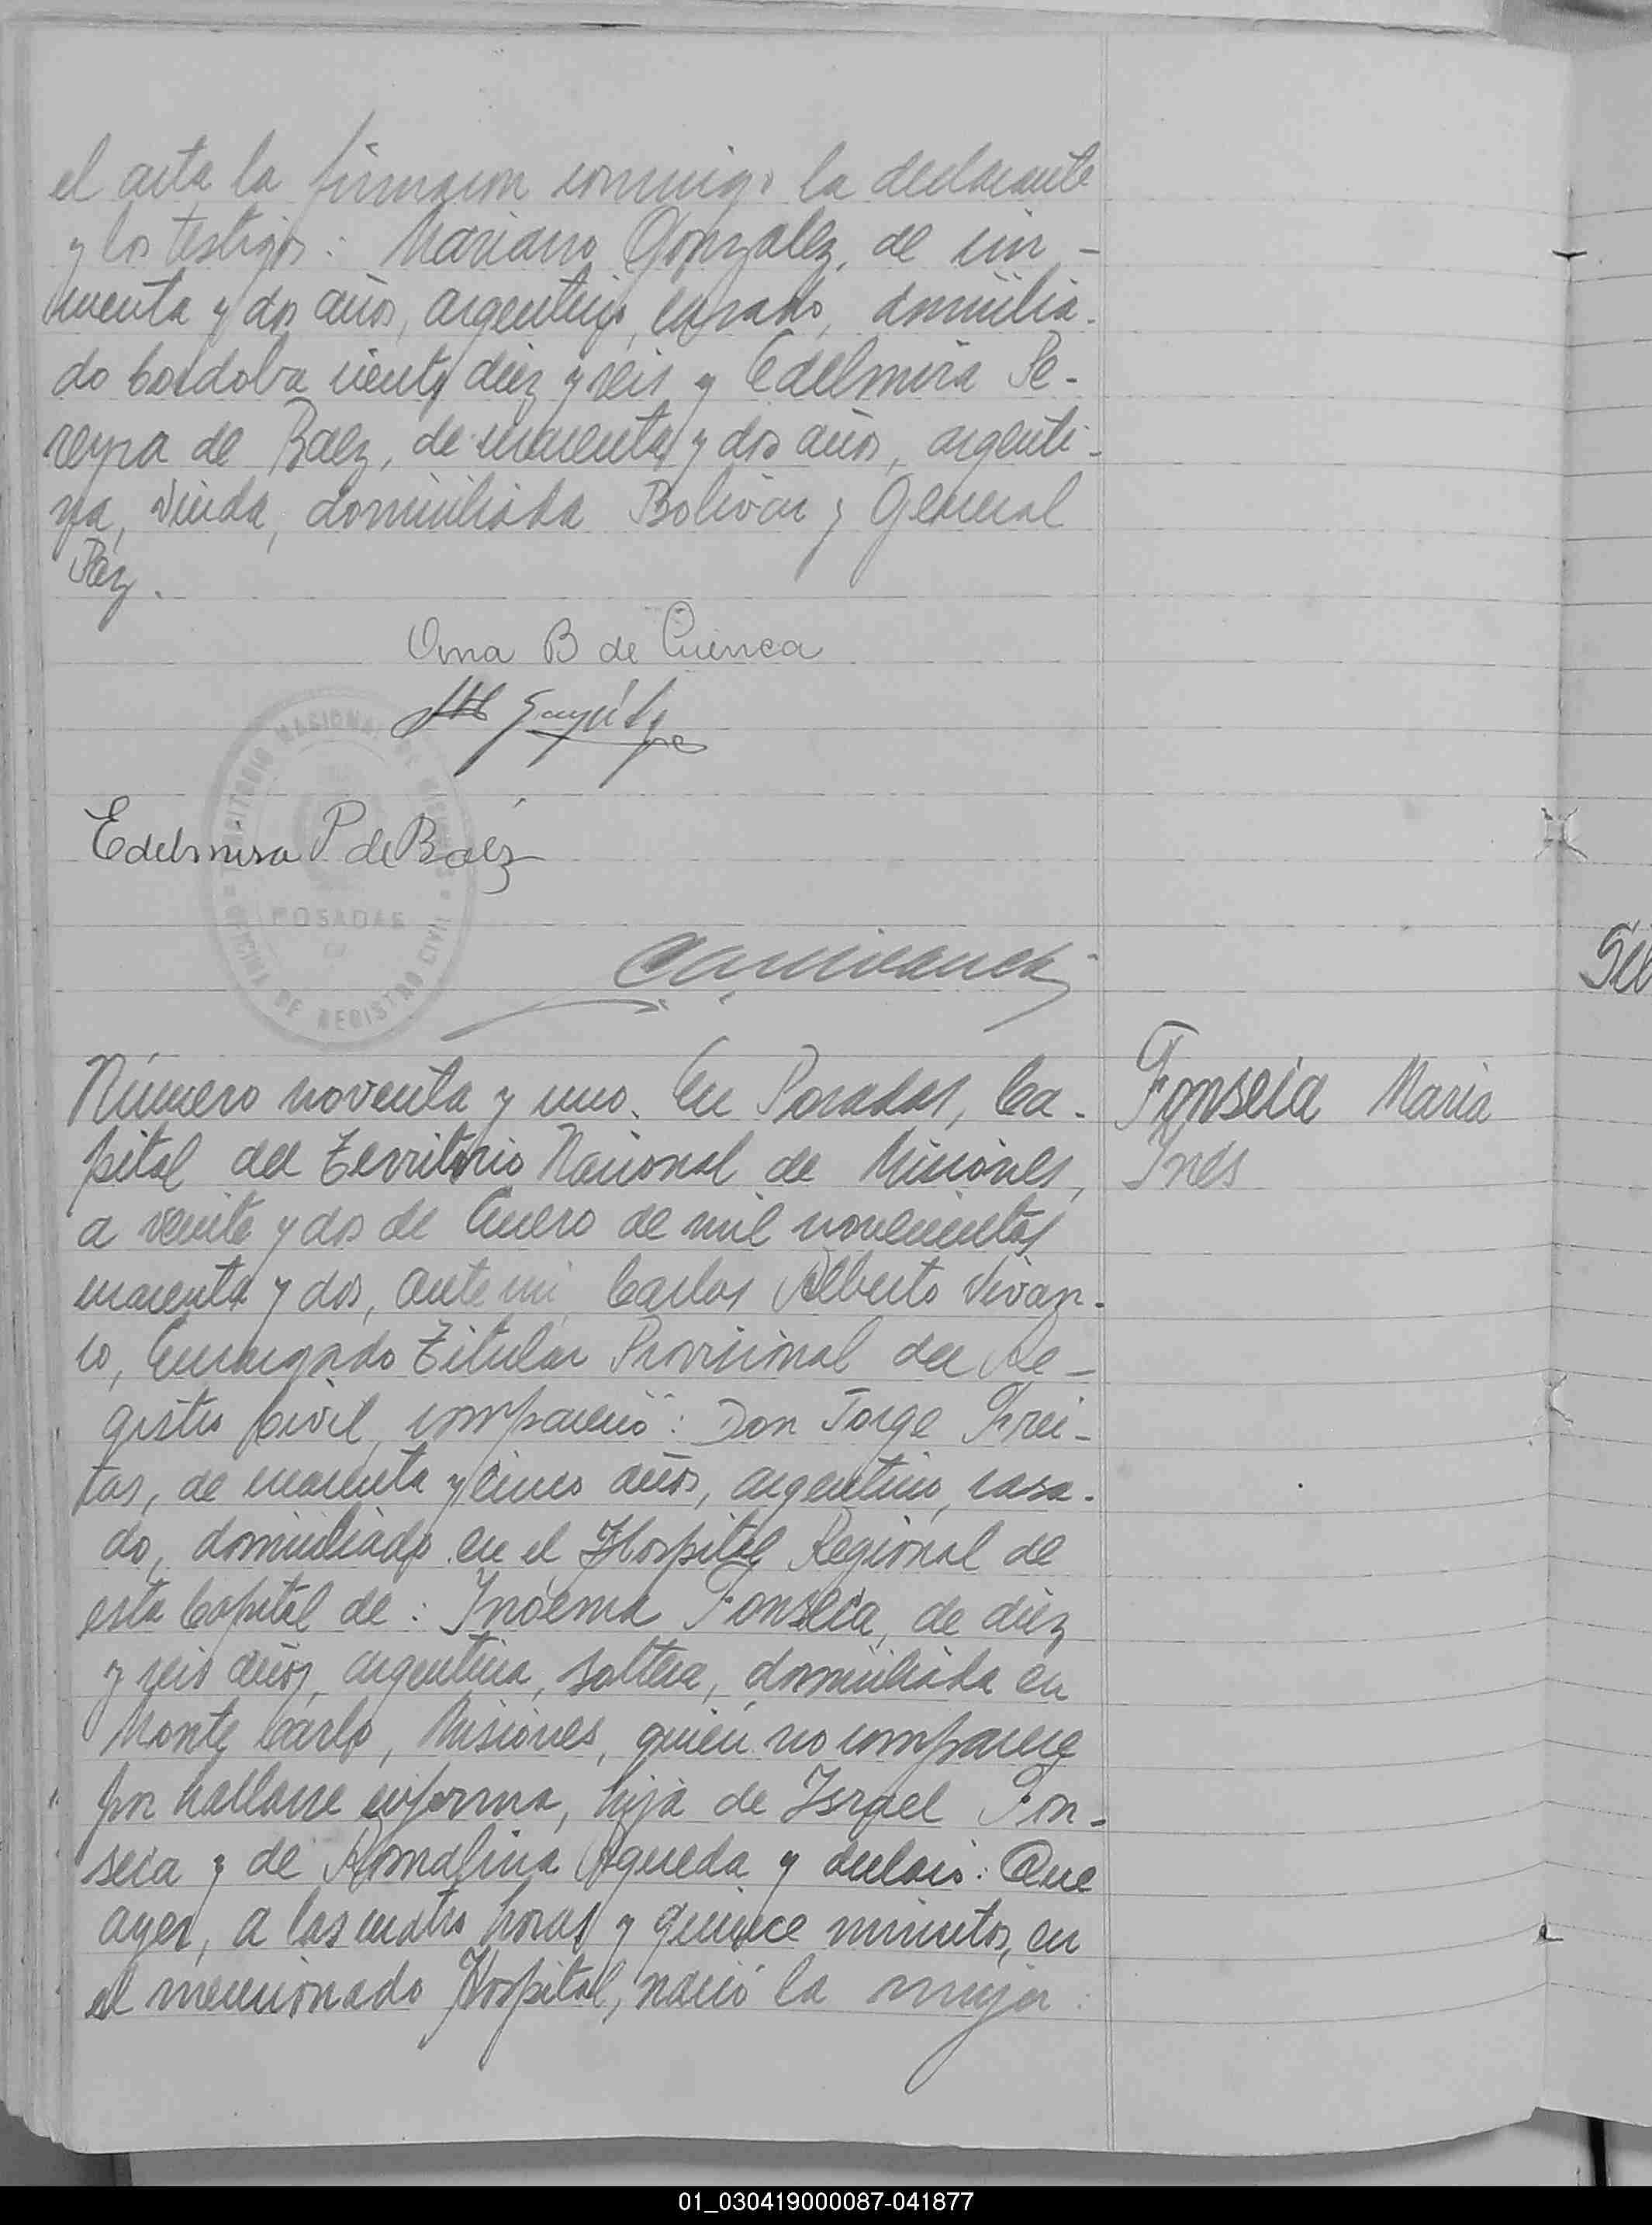 el acta la firmaron conmigo la declarante
y los testigos: Mariano Gonzalez, de cin-
cuenta y dos años, argentino, casado, domicilia-
do Cordoba ciento diez y seis y Edelmira Pe-
reyra de Baez, de cuarenta y dos años, argenti-
na, viuda, domiciliada Bolivar y General
Paz.
Ana B de Cuenca
Edelmira P de Baéz
TERRITORIO NACIONAL DE MISIONES
POSADAS
OFICINA DE REGISTRO CIVIL
Número noventa y uno. En Posadas, Ca-
pital del Territorio Nacional de Misiones,
a veinte y dos de Enero de mil novecientos
cuarenta y dos, ante mi, Carlos Alberto Vivan-
co, Encargado Titular Provisional del Re-
gistro Civil, compareció: Don Jorge Frei-
tas, de cuarenta y cinco años, argentino, casa-
do, domiciliado en el Hospital Regional de
esta Capital de: Inoema Fonseca, de diez
y seis años, argentina, soltera, domiciliada en
Monte Carlo, Misiones, quién no comparece
por hallarse enferma, hija de Israel Fon-
seca y de Romalina Agueda y declaró: Que
ayer, a las cuatro horas y quince minutos, en
el mencionado Hospital, nació la mujer:
Fonseca Maria
Inés
01_030419000087-041877